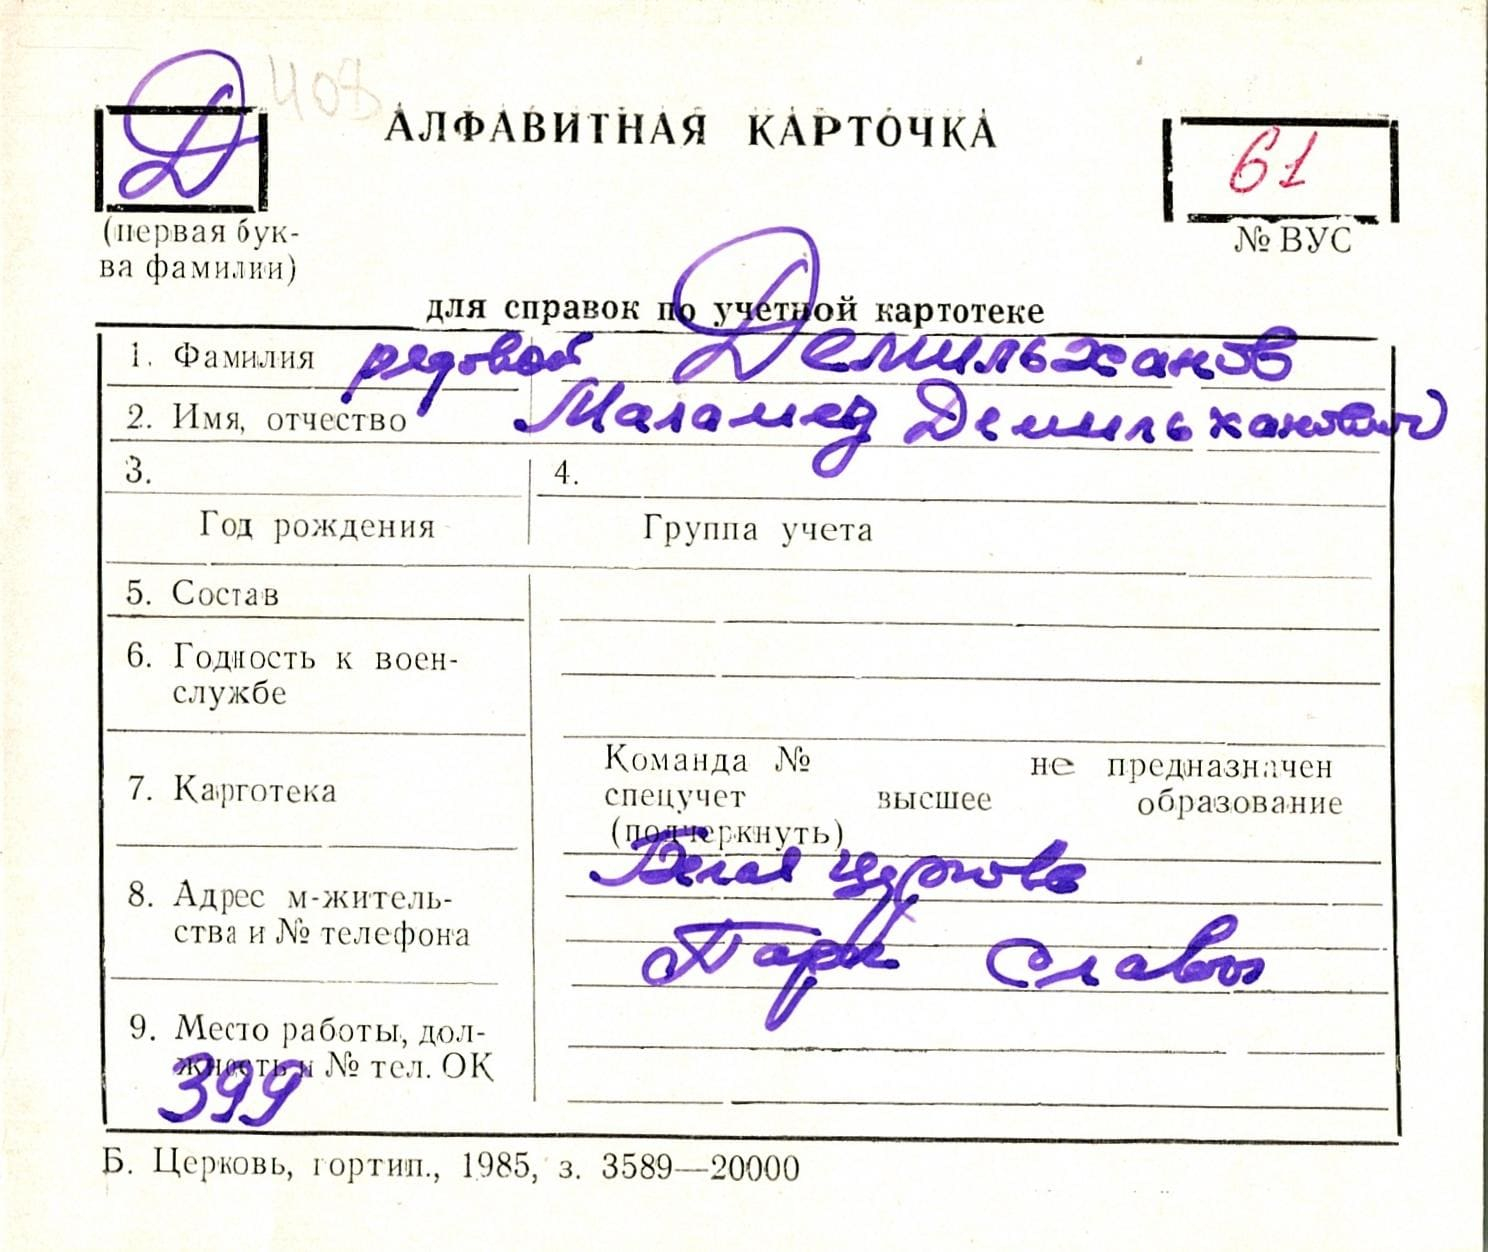 Д 408
АЛФАВИТНАЯ КАРТОЧКА
61
(первая бук-
ва фамилии)
№ ВУС
для справок по учетной картотеке
1. Фамилия рядовой Демильханов
2. Имя, отчество Магамед Демильханович
3.
4.
Год рождения
Группа учета
5. Состав
6. Годность к воен-
службе
7. Картотека
Команда № не предназначен
спецучет высшее образование
(подчеркнуть)
8. Адрес м-житель-
ства и № телефона
Белая Церковь
Парк Славы
9. Место работы, дол-
жность и № тел. ОК
399
Б. Церковь, гортип., 1985, з. 3589—20000